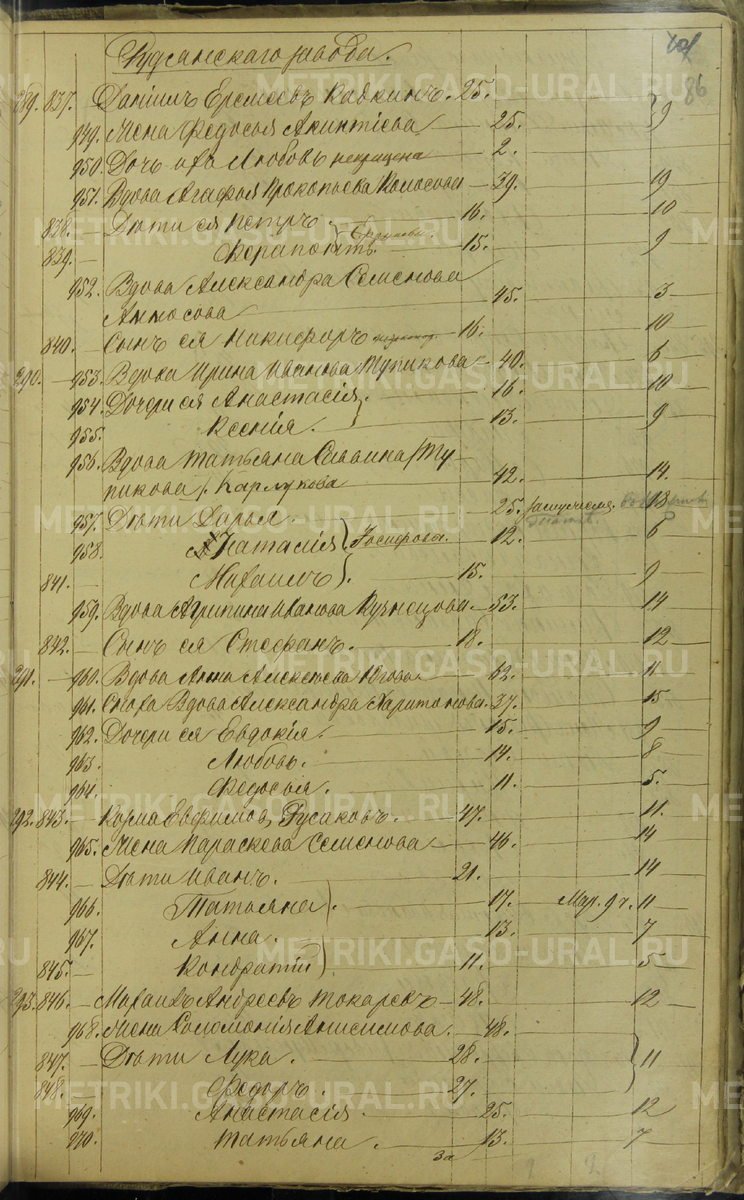 86
289. 837. Данiилъ Еремеевъ Кадкинъ. 25.
949. Жена Федосья Акинтiева 25. 9
950. Дочь ихъ Любовь 2.
951. Вдова Агафья Прокопьева Колосова 39. 19
838. Дѣти ея Петръ 16. 10
839. Ферапонтъ. 15. 9
952. Вдова Александра Семенова
Аносова 45. 3
840. Сынъ ея Никифоръ 16. 10
290. 953. Вдова Ирина Иванова Тупикова 40. 6
954. Дочери ея Анастасiя 16. 10
955. Ксенiя. 13. 9
956. Вдова Татьяна Саввина /Ту-
пикова/ Карлукова 42. 14.
957. Дѣти Дарья. 25. 13
958. Наталiя Iосифова. 12. 6
841. Михаилъ 15. 9
959. Вдова Агрипина Иванова Кузнецова. 53. 14
842. Сынъ ея Стефанъ. 18. 12
291. 960. Вдова Анна Алексеева 62. 11
961. Сноха Вдова Александра Харитонова. 37. 15
962. Дочери ея Евдокiя. 15. 9
963. Любовь. 14. 8
964. Федосья. 11. 5.
292. 843. Карма Евфимовъ Русаковъ. 47. 11.
965. Жена Параскева Семенова 46. 14
844. Дѣти Иванъ. 21. 14
966. Татьяна 17. Мар. 9 ч. 11
967. Анна. 13. 7
845. Кондратiй 11. 5
293. 846. Михаилъ Андреевъ Токаревъ 48. 12
968. Жена Соломонiя Анисимова. 48.
847. Дѣти Лука. 28. 11
848. Федоръ. 27.
969. Анастасiя 25. 12
970. Татьяна. 13. 7
За
METRIKI.GASO-URAL.RU